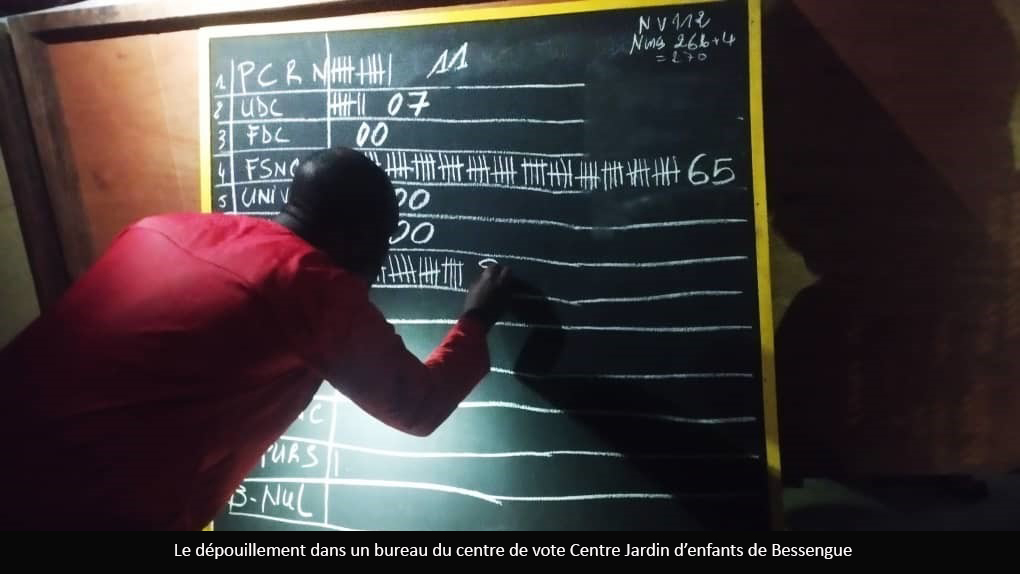 NV 112
Nins 266+4
= 270
1 PCRN 11
2 UDC 07
3 FDC 00
4 FSNC 65
5 UNIV 00
00
URS
B-NUL
Le dépouillement dans un bureau du centre de vote Centre Jardin d’enfants de Bessengue